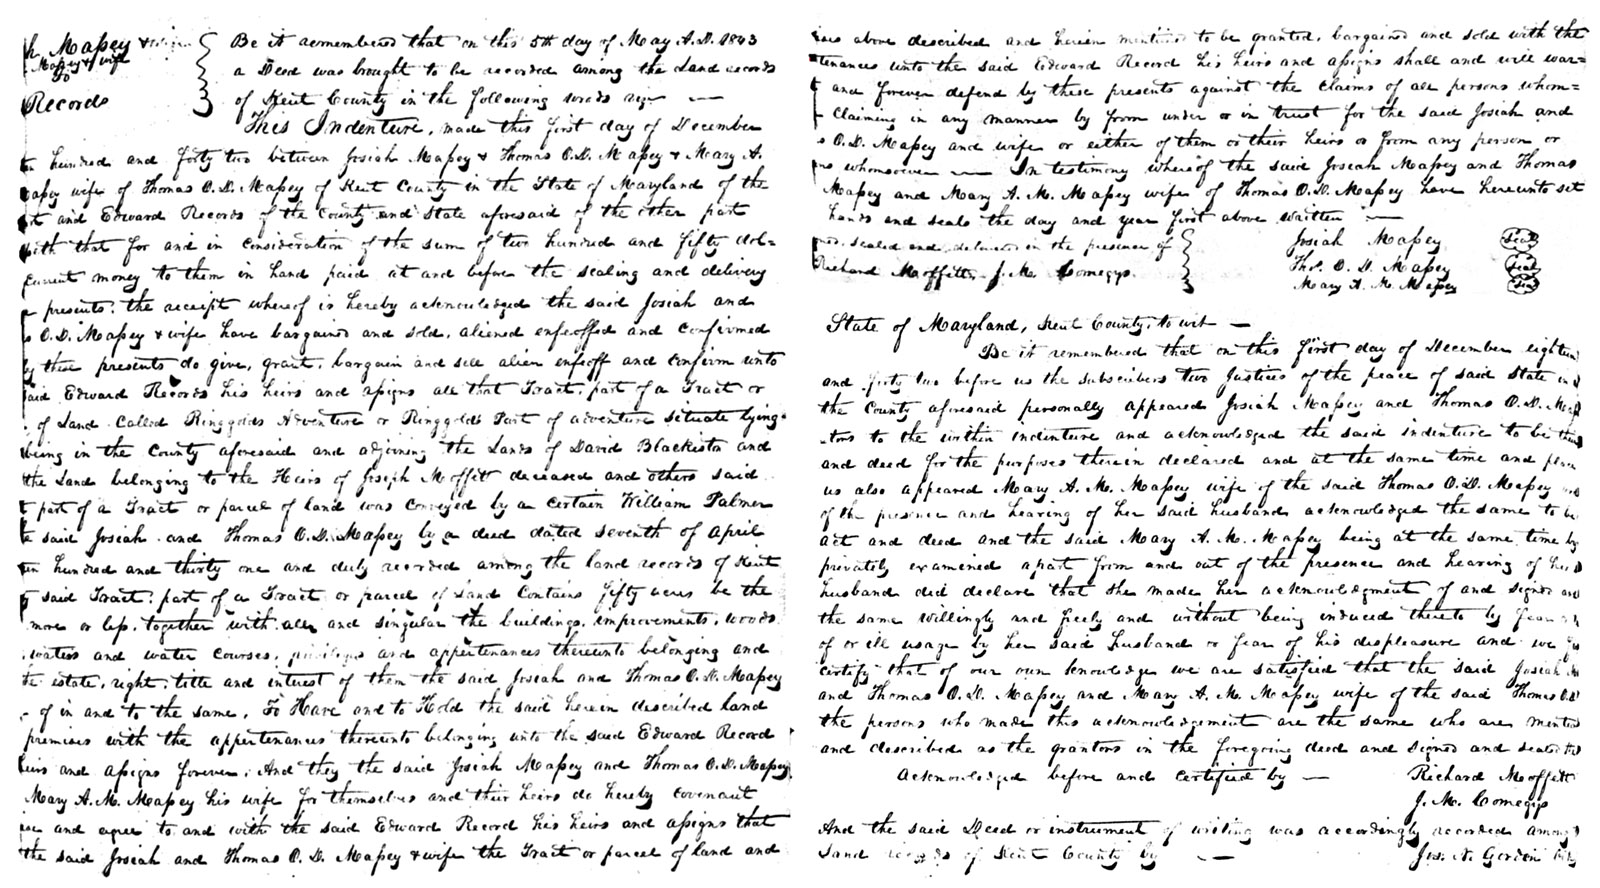 h. Massey &
Massey & wife
To
Records
Be it remembered that on this 5th day of May A.D. 1843
a Deed was brought to be recorded among the Land records
of Kent County in the following words viz —
This Indenture, made this first day of December
hundred and forty two between Josiah Massey & Thomas O.D. Massey & Mary A.
wife of Thomas O.D. Massey of Kent County in the State of Maryland of the
and Edward Records of the County and State aforesaid of the other part
with that for and in consideration of the sum of two hundred and fifty dol=
current money to them in hand paid at and before the sealing and delivery
presents: the receipt whereof is hereby acknowledged the said Josiah and
O.D. Massey & wife have bargained and sold, aliened enfeoffed and confirmed
by these presents do give, grant, bargain and sell alien enfeoff and confirm unto
said Edward Records his heirs and assigns all that Tract, part of a Tract or
of Land Called Ringgolds Adventure or Ringgolds Part of adventure situate lying
being in the County aforesaid and adjoining the Lands of David Blackiston and
the Land belonging to the Heirs of Joseph Moffit deceased and others said
part of a Tract or parcel of land was conveyed by a certain William Palmer
said Josiah and Thomas O.D. Massey by a deed dated seventh of April
hundred and thirty one and duly recorded among the land records of Kent
said Tract: part of a Tract or parcel of Land Contains fifty acres be the
more or less, together with all and singular the buildings, improvements, woods
waters and water courses, privileges and appertenances thereunto belonging and
estate, right, title and interest of them the said Josiah and Thomas O.D. Massey
of in and to the same, To Have and to Hold the said herein described land
premises with the appertenances thereunto belonging unto the said Edward Record
heirs and assigns forever. And they the said Josiah Massey and Thomas O.D. Massey
Mary A.M. Massey his wife for themselves and their heirs do hereby covenant
and agree to and with the said Edward Record his heirs and assigns that
the said Josiah and Thomas O.D. Massey & wife the Tract or parcel of land and
above described and herein mentioned to be granted, bargained and sold with the
tenances unto the said Edward Record his heirs and assigns shall and will war=
and forever defend by these presents against the claims of all persons whom=
claiming in any manner by from under or in trust for the said Josiah and
O.D. Massey and wife or either of them or their heirs or from any person or
whomsoever — In testimony whereof the said Josiah Massey and Thomas
Massey and Mary A.M. Massey wife of Thomas O.D. Massey have hereunto set
hands and seals the day and year first above written —
sealed and delivered in the presence of
Richard Moffett J.M. Comegys.
Josiah Massey Seal
Tho. O.D. Massey Seal
Mary A.M. Massey Seal
State of Maryland, Kent County, to wit —
Be it remembered that on this first day of December eighteen
and forty two before us the subscribers two Justices of the peace of said State in
the County aforesaid personally appeared Josiah Massey and Thomas O.D.
tors to the within indenture and acknowledged the said indenture to be
and deed for the purposes therein declared and at the same time and place
us also appeared Mary A.M. Massey wife of the said Thomas O.D. Massey
of the presence and hearing of her said husband acknowledged the same to be
act and deed and the said Mary A.M. Massey being at the same time by
privately examined apart from and out of the presence and hearing of her
husband did declare that she made her acknowledgment of and signed and
the same willingly and freely and without being induced thereto by fear
of or ill usage by her said husband or fear of his displeasure and we
certify that of our own knowledge we are satisfied that the said Josiah
and Thomas O.D. Massey and Mary A.M. Massey wife of the said Thomas O.D
the persons who made this acknowledgement are the same who are
and described as the grantors in the foregoing deed and signed and sealed
acknowledged before and certified by —
Richard Moffett
J.M. Comegys
And the said Deed or instrument of writing was accordingly recorded among
Land records of Kent County by —
Jos. N. Gordon